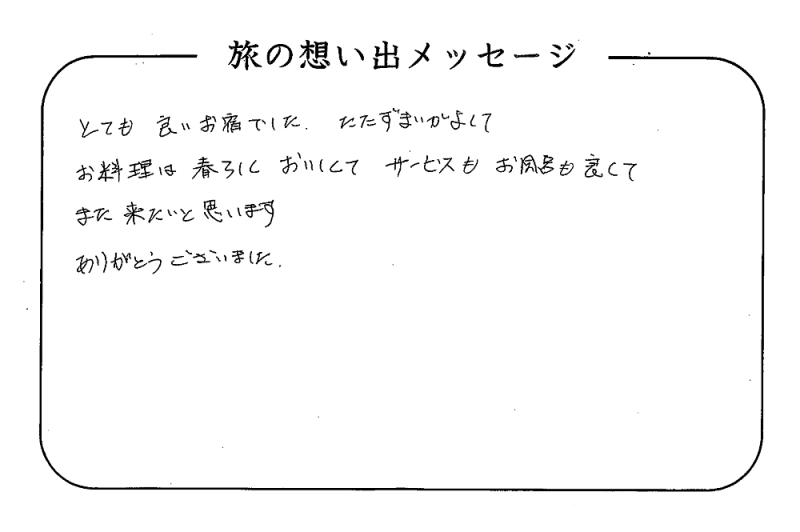 旅の想い出メッセージ
とても 良いお宿でした. たたずまいがよくて
お料理は 春らしく おいしくて サービスも お風呂も良くて
また 来たいと思います
ありがとうございました.